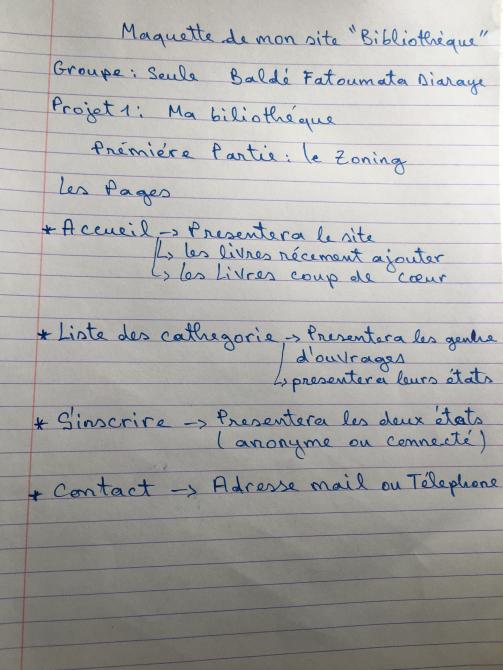 Maquette de mon site "Bibliothéque"
Groupe : Seule Baldé Fatoumata Diaraye
Projet 1 : Ma biliothéque
Prémiére Partie : le Zoning
Les Pages
* Accueil → Presentera le site
↳ les livres récement ajouter
↳ les Livres coup de cœur
* Liste des cathegorie → Presentera les genre
d'ouvrages
↳ presentera leurs états
* S'inscrire → Presentera les deux états
( anonyme ou connecté )
* Contact → Adresse mail ou Télephone